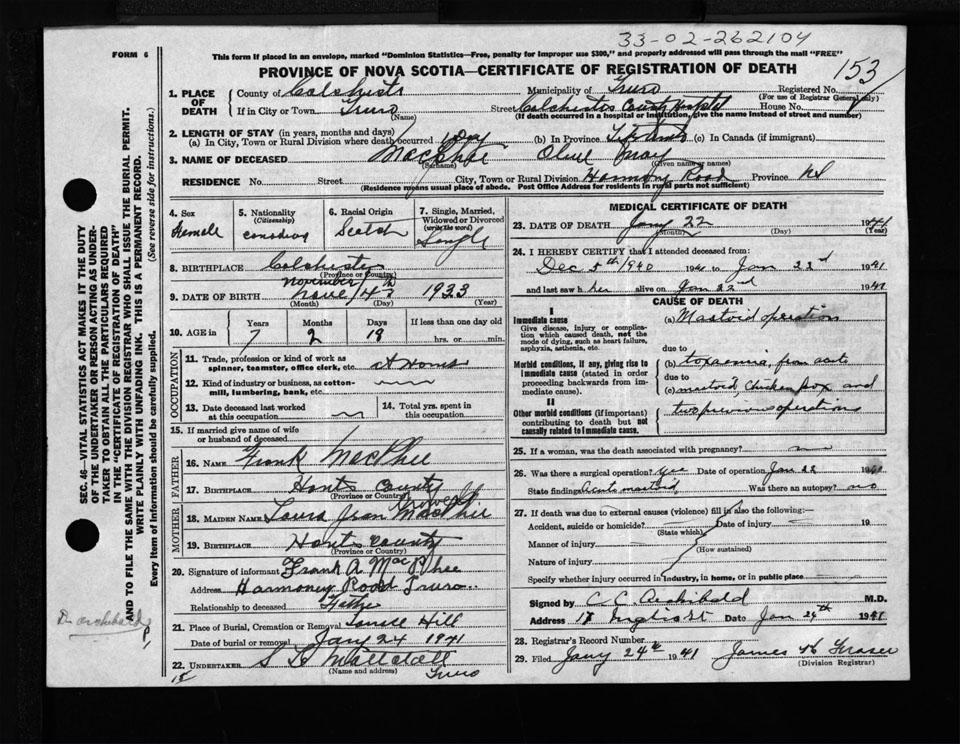 33-02-262104
FORM 6
This form if placed in an envelope, marked "Dominion Statistics—Free, penalty for improper use $300," and properly addressed will pass through the mail "FREE"
PROVINCE OF NOVA SCOTIA—CERTIFICATE OF REGISTRATION OF DEATH
153
1. PLACE OF DEATH
County of Colchester Municipality of Truro Registered No.
(For use of Registrar General only)
If in City or Town Truro Street Colchester County Hospital House No.
(Name) (If death occurred in a hospital or institution, give the name instead of street and number)
2. LENGTH OF STAY (in years, months and days)
(a) In City, Town or Rural Division where death occurred 1 Day (b) In Province Lifetime (c) In Canada (if immigrant)
3. NAME OF DECEASED MacPhee Olive May
(Surname) (Given name or names)
RESIDENCE No. Street City, Town or Rural Division Harmony Road Province NS
(Residence means usual place of abode. Post Office Address for residents in rural parts not sufficient)
4. Sex Female
5. Nationality (Citizenship) Canadian
6. Racial Origin Scotch
7. Single, Married, Widowed or Divorced (write the word) Single
8. BIRTHPLACE Colchester
(Province or Country)
November
9. DATE OF BIRTH 1933
(Month) (Day) (Year)
10. AGE in Years Months Days If less than one day old
7 2 18 hrs. or min.
OCCUPATION
11. Trade, profession or kind of work as spinner, teamster, office clerk, etc. at Home
12. Kind of industry or business, as cotton-mill, lumbering, bank, etc.
13. Date deceased last worked at this occupation
14. Total yrs. spent in this occupation
15. If married give name of wife or husband of deceased
FATHER
16. NAME Frank MacPhee
17. BIRTHPLACE Hants County
(Province or Country)
MOTHER
18. MAIDEN NAME Laura Jean MacPhee
19. BIRTHPLACE Hants County
(Province or Country)
20. Signature of informant Frank A MacPhee
Address Harmoney Road Truro
Relationship to deceased Father
21. Place of Burial, Cremation or Removal Hill
Date of burial or removal Jany 24 1941
22. UNDERTAKER
(Name and address) Truro
15
MEDICAL CERTIFICATE OF DEATH
23. DATE OF DEATH Jany 22 1941
(Month) (Day) (Year)
24. I HEREBY CERTIFY that I attended deceased from:
Dec 5th 1940 194 to Jan 22nd 1941
and last saw her alive on Jan 22nd 1941
CAUSE OF DEATH
I
Immediate cause (a) Mastoid operation
Give disease, injury or complication which caused death, not the mode of dying, such as heart failure, asphyxia, asthenia, etc.
due to
Morbid conditions, if any, giving rise to immediate cause (stated in order proceeding backwards from immediate cause).
(b) toxaemia, from acute
due to
(c) mastoid, Chicken pox and
II
Other morbid conditions (if important) contributing to death but not causally related to immediate cause.
two previous operation
25. If a woman, was the death associated with pregnancy?
26. Was there a surgical operation? yes Date of operation Jan 22
State finding Acute mastoid Was there an autopsy? no
27. If death was due to external causes (violence) fill in also the following:
Accident, suicide or homicide? Date of injury 19
(State which)
Manner of injury
(How sustained)
Nature of injury
Specify whether injury occurred in industry, in home, or in public place
Signed by C C Archibald M.D.
Address 18 Inglis St Date Jan 24th 1941
28. Registrar's Record Number
29. Filed Jany 24th 1941 James H Fraser
(Division Registrar)
SEC. 46—VITAL STATISTICS ACT MAKES IT THE DUTY
OF THE UNDERTAKER OR PERSON ACTING AS UNDERTAKER
TO OBTAIN ALL THE PARTICULARS REQUIRED
IN THE "CERTIFICATE OF REGISTRATION OF DEATH"
AND TO FILE THE SAME WITH THE DIVISION REGISTRAR WHO SHALL ISSUE THE BURIAL PERMIT.
WRITE PLAINLY WITH UNFADING INK. THIS IS A PERMANENT RECORD.
Every item of information should be carefully supplied. (See reverse side for instructions.)
Dr Archibald